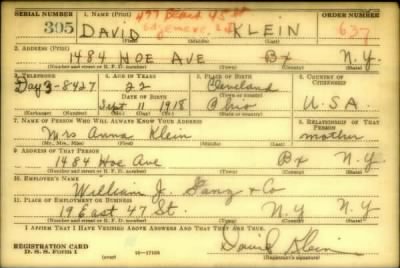 SERIAL NUMBER 1. NAME (Print) ORDER NUMBER
305 DAVID KLEIN 637
(First) (Middle) (Last)
2. ADDRESS (Print)
1484 HOE AVE Bx N.Y.
(Number and street or R. F. D. number) (Town) (County) (State)
3. TELEPHONE 4. AGE IN YEARS 5. PLACE OF BIRTH 6. COUNTRY OF CITIZENSHIP
Day 3-8427 22 Cleveland
DATE OF BIRTH (Town or county)
Sept 11 1918 Ohio U.S.A.
(Mo.) (Day) (Yr.) (State or country)
7. NAME OF PERSON WHO WILL ALWAYS KNOW YOUR ADDRESS 8. RELATIONSHIP OF THAT PERSON
Mrs Anna Klein mother
(Mr., Mrs., Miss) (First) (Middle) (Last)
9. ADDRESS OF THAT PERSON
1484 Hoe Ave Bx N.Y.
(Number and street or R. F. D. number) (Town) (County) (State)
10. EMPLOYER'S NAME
William J. Ganz & Co
11. PLACE OF EMPLOYMENT OR BUSINESS
19 East 47 St. N Y N.Y.
(Number and street or R. F. D. number) (Town) (County) (State)
I AFFIRM THAT I HAVE VERIFIED ABOVE ANSWERS AND THAT THEY ARE TRUE.
REGISTRATION CARD
D. S. S. Form 1 16—17105 David Klein
(Registrant's signature)